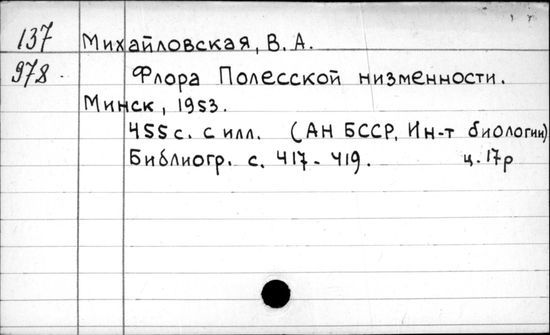 137 Михайловская, В. А.
978. Флора Полесской низменности.
Минск, 1953.
455 с. с илл. (АН БССР, Ин-т биологии)
Библиогр. с. 417-419. ц. 17р